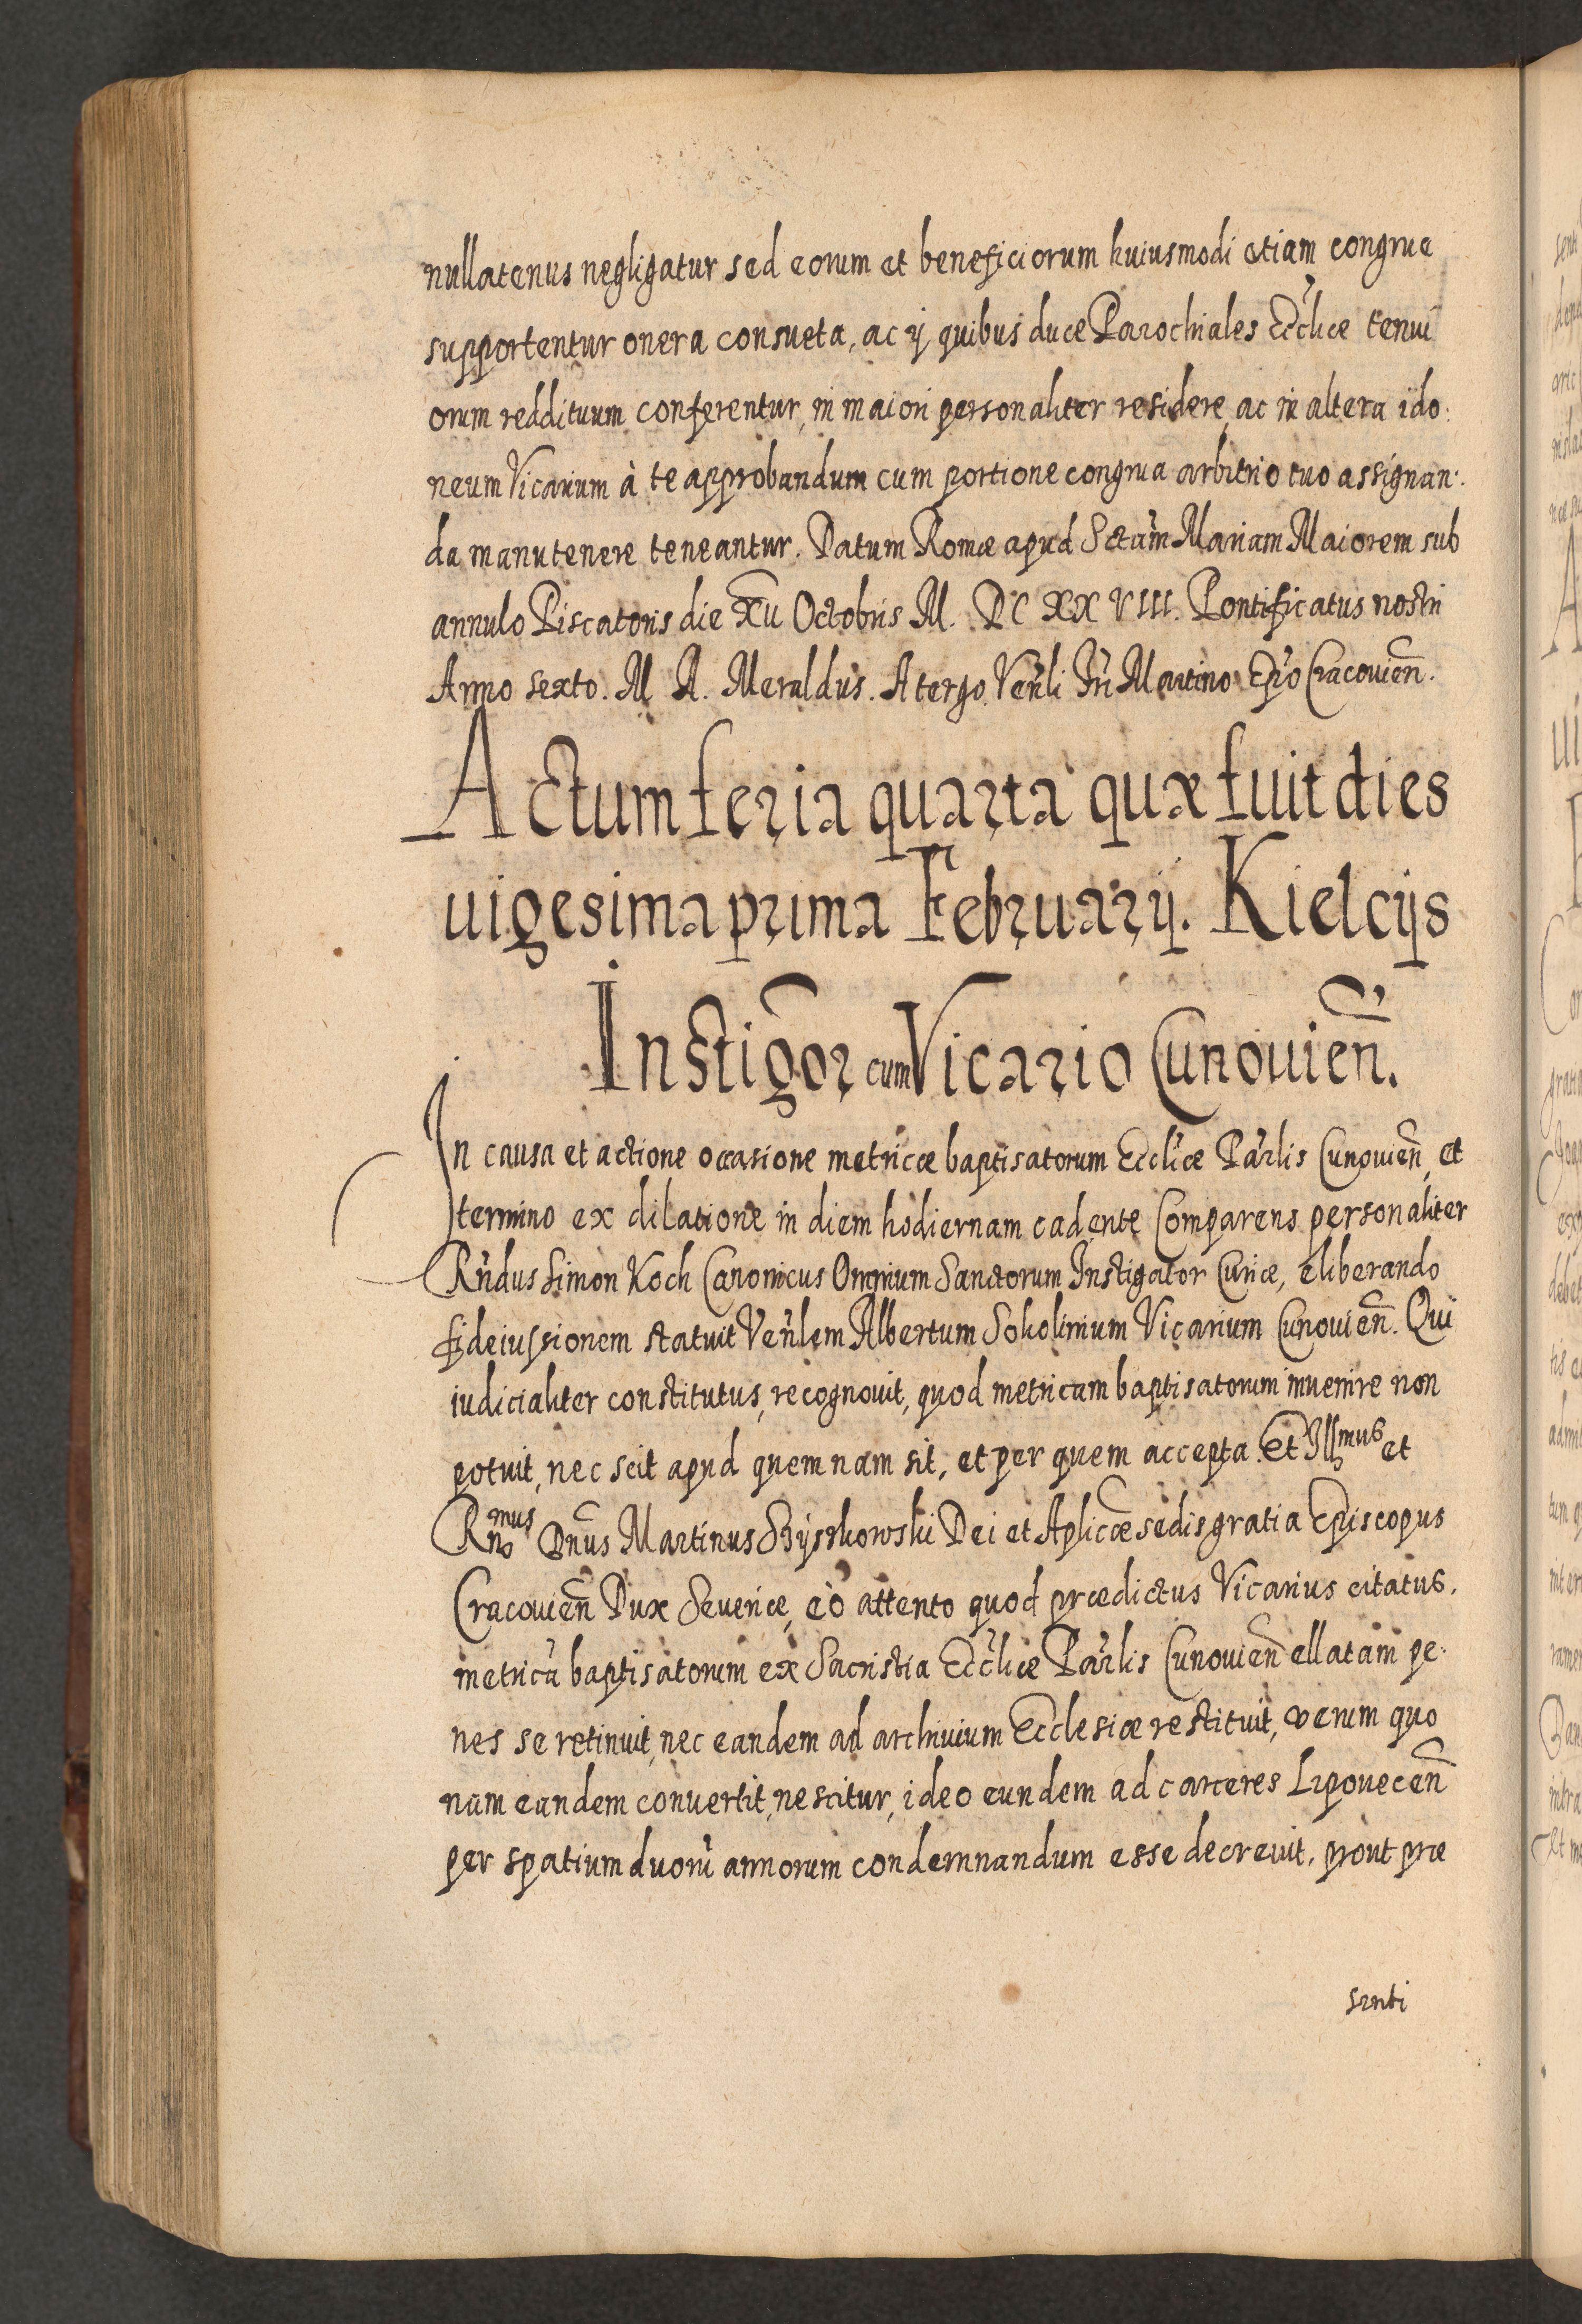 nullatenus negligatur sed eorum et beneficiorum huiusmodi etiam congrue
supportentur onera consueta, ac ij quibus duæ Parochiales Ecclicæ tenui
orum reddituum conferentur, in maiori personaliter residere, ac in altera ido:
neum Vicarium à te approbandum cum portione congrua arbitrio tuo assignan:
da manutenere teneantur. Datum Romæ apud Sctam Mariam Maiorem sub
annulo Piscatoris die XII Octobris M. DC XX VIII. Pontificatus nostri
Anno sexto. M A. Meraldus. A tergo. Venli Fri Martino Epo Cracouien̄.
Actum feria quarta quæ fuit dies
uigesima prima Februarij. Kielcijs
Instigor cum Vicario Cunouien̄.
In causa et actione occasione metricæ baptisatorum Ecclicæ Parlis Cunouien̄, et
termino ex dilatione in diem hodiernam cadente Comparens personaliter
Rndus Simon Koch Canonicus Omnium Sanctorum Instigator Curiæ, eliberando
fideiussionem statuit Venlem Albertum Sokolinium Vicarium Cunouien̄. Qui
iudicialiter constitutus, recognouit, quod metricam baptisatorum inuenire non
potuit, nec scit apud quemnam sit, et per quem accepta. Et Illmus et
Rnmus Dnus Martinus Szyszkowski Dei et Aplicæ sedis gratia Episcopus
Cracouien̄ Dux Seueriæ, eò attento quod prædictus Vicarius citatus,
metricā baptisatorum ex Sacristia Ecclicæ Parlis Cunouien̄ ellatam pe:
nes se retinuit, nec eandem ad archiuium Ecclesiæ restituit, verum quo
nam eandem conuertit, nescitur, ideo eundem ad carceres Lipouecen̄
per spatium duorū annorum condemnandum esse decreuit, prout præ
senti